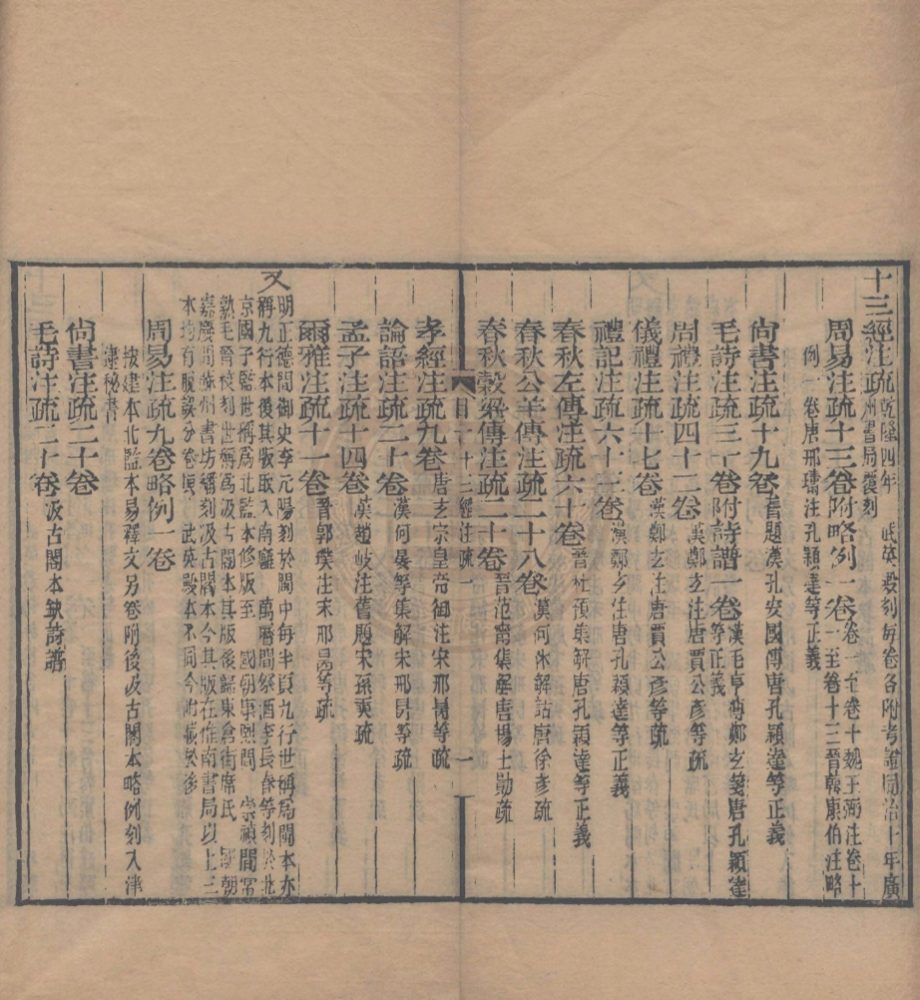 十三經注疏乾隆四年 武英殿刻每卷各附考證同治十年廣
州書局覆刻
周易注疏十三卷附略例一卷卷一至卷十魏王弼注卷十
一至卷十三晉韓康伯注略
例一卷唐邢璹注孔穎達等正義
尚書注疏十九卷舊題漢孔安國傳唐孔穎達等正義
毛詩注疏三十卷附詩譜一卷漢毛亨傳鄭玄箋唐孔穎達
等正義
周禮注疏四十二卷漢鄭玄注唐賈公彥等疏
儀禮注疏十七卷漢鄭玄注唐賈公彥等疏
禮記注疏六十三卷漢鄭玄注唐孔穎達等正義
春秋左傳注疏六十卷晉杜預集解唐孔穎達等正義
春秋公羊傳注疏二十八卷漢何休解詁唐徐彥疏
春秋穀梁傳注疏二十卷晉范甯集解唐楊士勛疏
目 十三經注疏一 一
孝經注疏九卷唐玄宗皇帝御注宋邢昺等疏
論語注疏二十卷魏何晏等集解宋邢昺等疏
孟子注疏十四卷漢趙岐注舊題宋孫奭疏
爾雅注疏十一卷晉郭璞注宋邢昺等疏
又
明正德間御史李元陽刻於閩中每半頁九行世稱為閩本亦
稱九行本後其版取入南廱 萬厯間祭酒李長春等刻於北
京國子監世稱為北監本修版至 國朝事熙間 崇禎間常
熟毛晉校刻世稱為汲古閣本其版後歸東倉街席氏 朝
嘉慶間蘇州書坊繙刻汲古閣本今其版在淮南書局以上三
本均有脫誤分卷與 武英殿本不同今附載於後
周易注疏九卷略例一卷
按建本北監本易釋文另卷附後汲古閣本略例刻入津
逮秘書
尚書注疏二十卷
毛詩注疏二十卷汲古閣本缺詩譜